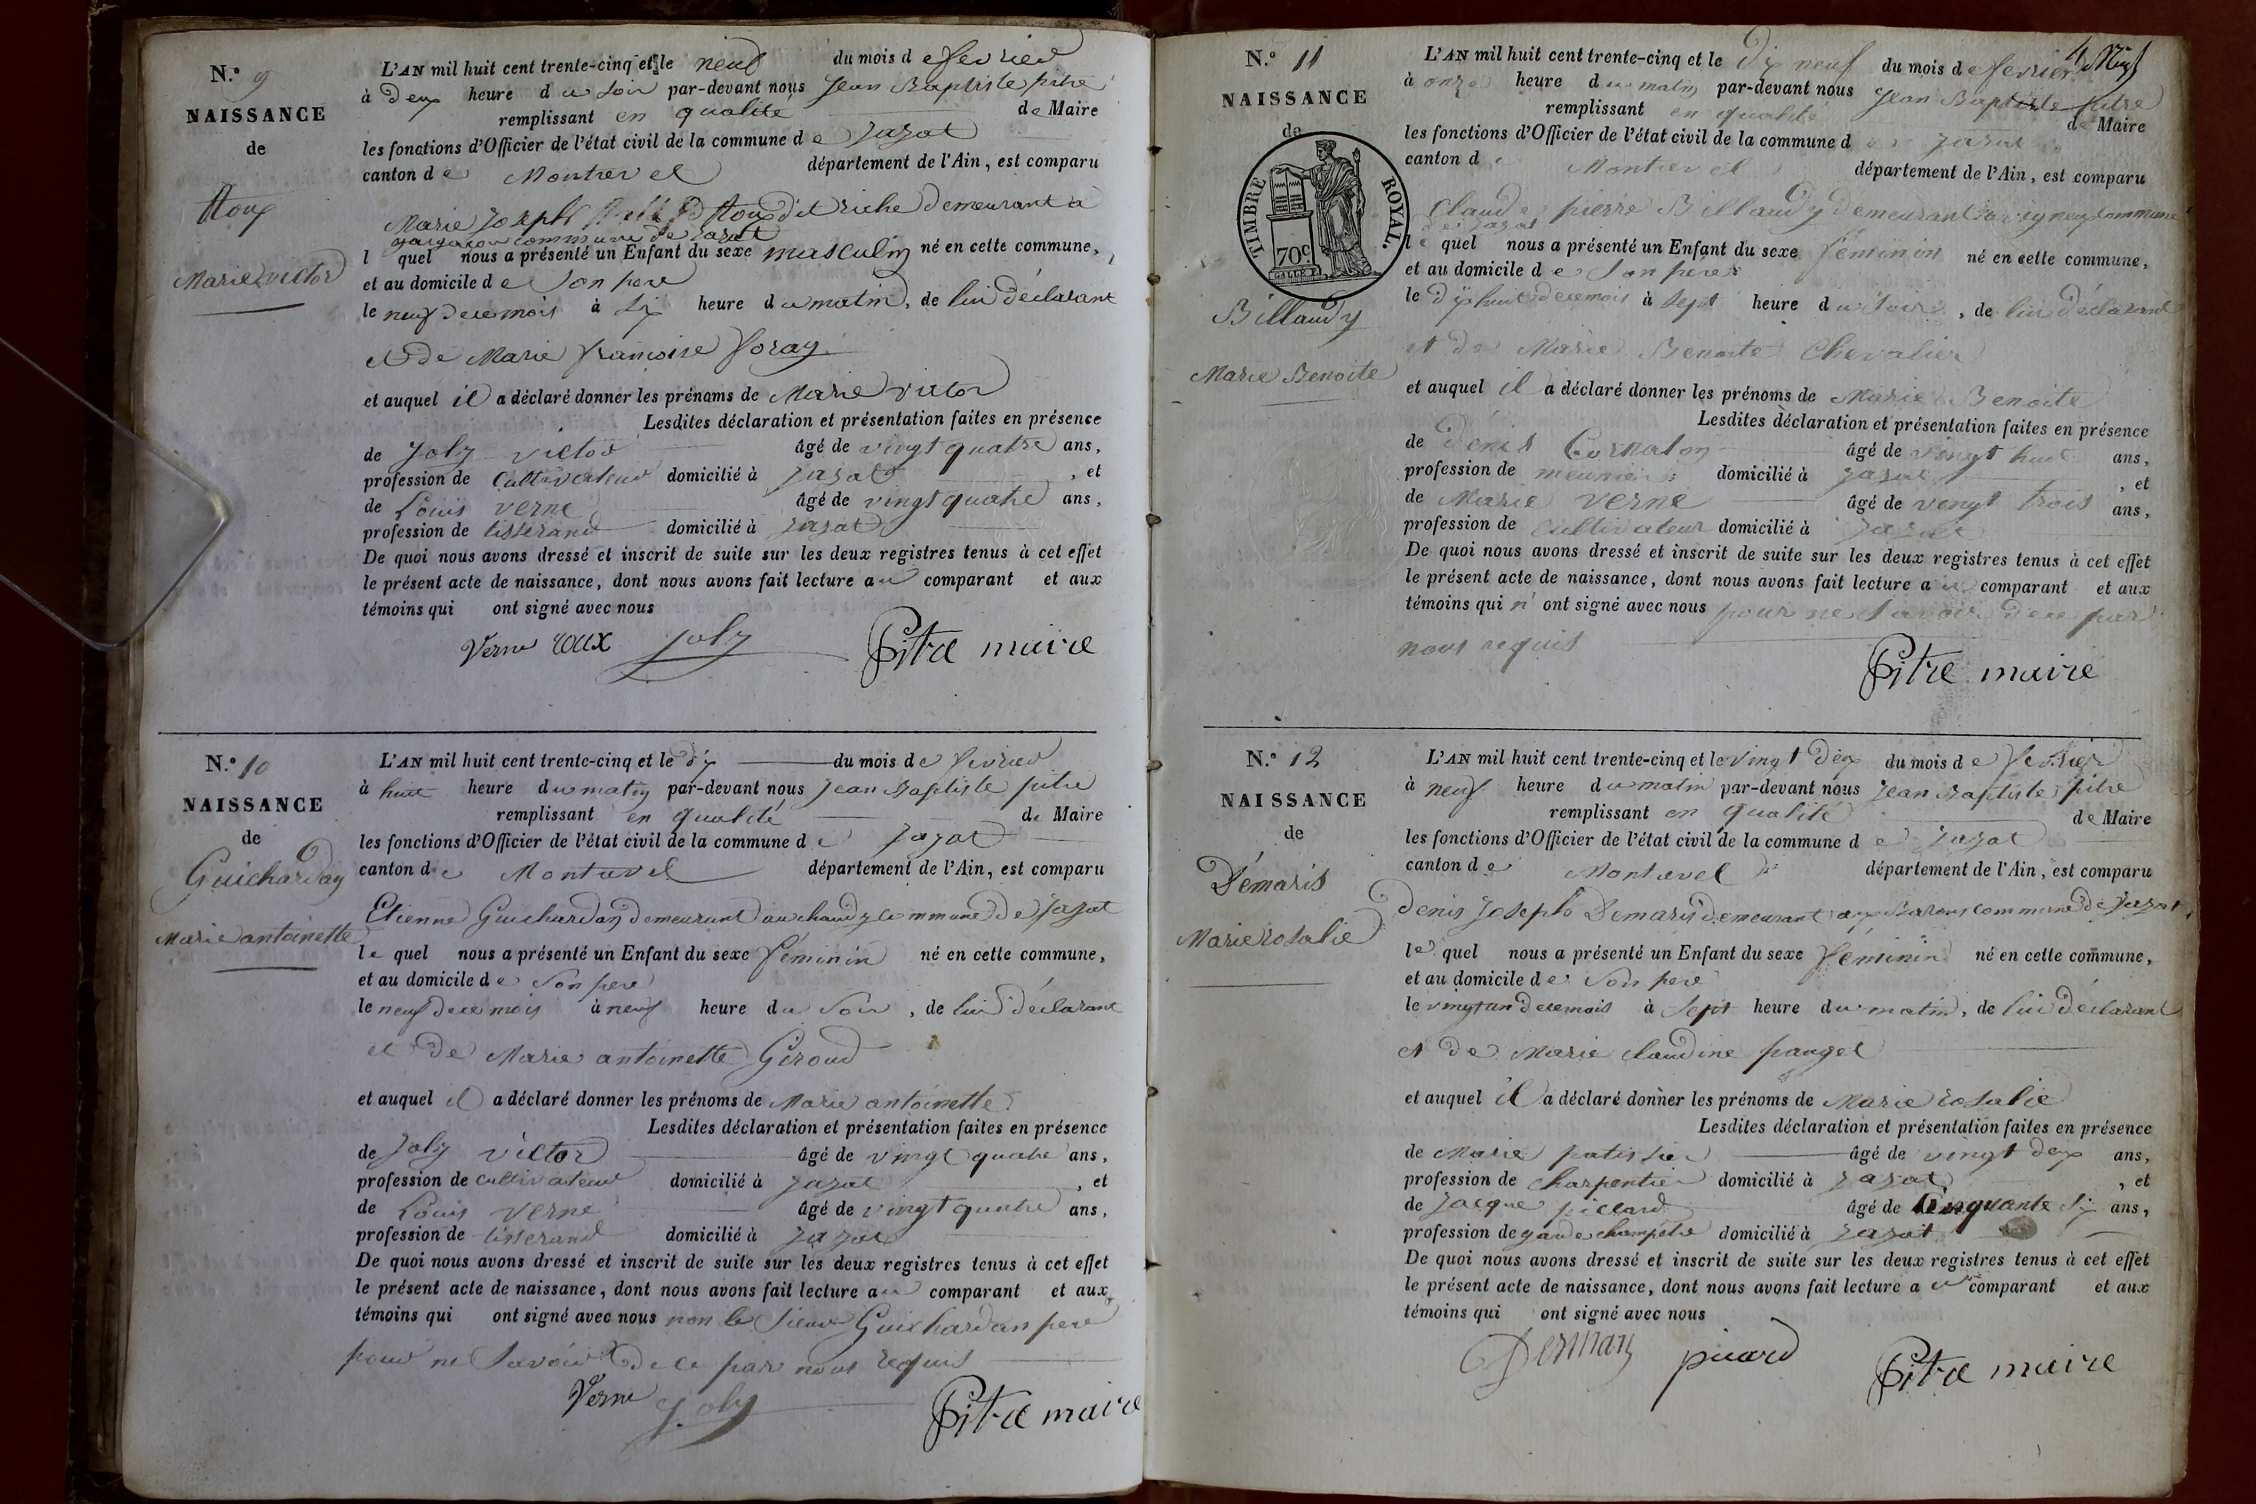 N.° 9
NAISSANCE
de
Roux
Marie victor
L'AN mil huit cent trente-cinq et le neuf du mois de fevrier
à deux heure du soir par-devant nous Jean Baptiste pitre
remplissant en qualité de Maire
les fonctions d'Officier de l'état civil de la commune de jayat
canton de Montrevel département de l'Ain, est comparu
Marie joseph Roux dit riche demeurant à
commune de jayat
l quel nous a présenté un Enfant du sexe masculin né en cette commune,
et au domicile de son pere
le neuf de ce mois à six heure du matin, de lui déclarant
et de Marie françoise foray
et auquel il a déclaré donner les prénoms de Marie victor
Lesdites déclaration et présentation faites en présence
de Joly victor âgé de vingt quatre ans,
profession de cultivateur domicilié à jayat, et
de Louis verne âgé de vingt quatre ans,
profession de tisserand domicilié à jayat
De quoi nous avons dressé et inscrit de suite sur les deux registres tenus à cet effet
le présent acte de naissance, dont nous avons fait lecture au comparant et aux
témoins qui ont signé avec nous
Verne roux joly Pitre maire
N.° 10
NAISSANCE
de
Guichardan
Marie antoinette
L'AN mil huit cent trente-cinq et le dix du mois de fevrier
à huit heure du matin par-devant nous Jean Baptiste pitre
remplissant en qualité de Maire
les fonctions d'Officier de l'état civil de la commune de jayat
canton de Montrevel département de l'Ain, est comparu
Etienne Guichardan demeurant au chandy commune de jayat
le quel nous a présenté un Enfant du sexe féminin né en cette commune,
et au domicile de son pere
le neuf de ce mois à neuf heure du soir, de lui déclarant
et de Marie antoinette Giroud
et auquel il a déclaré donner les prénoms de Marie antoinette
Lesdites déclaration et présentation faites en présence
de Joly victor âgé de vingt quatre ans,
profession de cultivateur domicilié à jayat, et
de Louis verne âgé de vingt quatre ans,
profession de tisserand domicilié à jayat
De quoi nous avons dressé et inscrit de suite sur les deux registres tenus à cet effet
le présent acte de naissance, dont nous avons fait lecture au comparant et aux
témoins qui ont signé avec nous non le sieur Guichardan pere
pour ne savoir de ce par nous requis
Verne Joly Pitre maire
N.° 11
NAISSANCE
de
TIMBRE ROYAL.
70c
Billaudy
Marie Benoite
L'AN mil huit cent trente-cinq et le dix neuf du mois de fevrier
à onze heure du matin par-devant nous Jean Baptiste pitre
remplissant en qualité de Maire
les fonctions d'Officier de l'état civil de la commune de jayat
canton de Montrevel département de l'Ain, est comparu
Claude pierre Billaudy demeurant commune
de jayat
le quel nous a présenté un Enfant du sexe féminin né en cette commune,
et au domicile de son pere
le dix huit de ce mois à sept heure du soir, de lui déclarant
et de Marie Benoite Chevalier
et auquel il a déclaré donner les prénoms de Marie Benoite
Lesdites déclaration et présentation faites en présence
de Denis Cormaton âgé de vingt huit ans,
profession de meunier domicilié à jayat, et
de Marie verne âgé de vingt trois ans,
profession de cultivateur domicilié à jayat
De quoi nous avons dressé et inscrit de suite sur les deux registres tenus à cet effet
le présent acte de naissance, dont nous avons fait lecture au comparant et aux
témoins qui n' ont signé avec nous pour ne savoir de ce par
nous requis
Pitre maire
N.° 12
NAISSANCE
de
Démaris
Marie rosalie
L'AN mil huit cent trente-cinq et le vingt deux du mois de fevrier
à neuf heure du matin par-devant nous Jean Baptiste pitre
remplissant en qualité de Maire
les fonctions d'Officier de l'état civil de la commune de jayat
canton de Montrevel département de l'Ain, est comparu
Denis Joseph Demaris demeurant aux Barons commune de jayat,
le quel nous a présenté un Enfant du sexe féminin né en cette commune,
et au domicile de son pere
le vingt un de ce mois à sept heure du matin, de lui déclarant
et de Marie claudine pauget
et auquel il a déclaré donner les prénoms de Marie rosalie
Lesdites déclaration et présentation faites en présence
de Marie patissier âgé de vingt deux ans,
profession de charpentier domicilié à jayat, et
de Jacque picard âgé de Cinquante six ans,
profession de garde champetre domicilié à jayat
De quoi nous avons dressé et inscrit de suite sur les deux registres tenus à cet effet
le présent acte de naissance, dont nous avons fait lecture au comparant et aux
témoins qui ont signé avec nous
picard Pitre maire